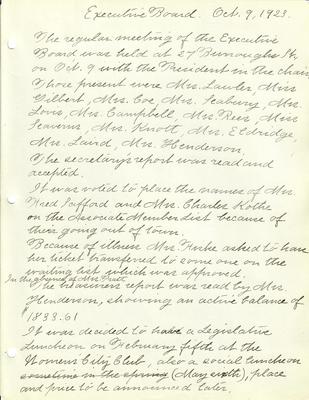 Executive Board. Oct. 9, 1923.
The regular meeting of the Executive
Board was held at 27 Burroughs St.
on Oct. 9 with the President in the chair
Those present were Mrs. Lawler, Miss
Gilbert, Mrs. Coe, Mrs. Seabury, Mrs.
Mrs. Campbell, Mrs Rees, Miss
Mrs. Knott, Mrs. Eldridge,
Mrs. Laird, Mrs. Henderson,
The secretary's report was read and
accepted.
It was voted to place the names of Mrs.
Fred Safford and Mrs. Charles Rothe
on the Associate Member list because of
their going out of town.
Because of illness Mrs. asked to have
her ticket transferred to some one on the
waiting list which was approved.
In the absence of Mrs. Pratt
The treasurers report was read by Mrs.
Henderson, showing an active balance of
1833.61
It was decided to have a Legislative
Luncheon on February fifth at the
Women's City Club, also a social luncheon
sometime in the spring (May sixth), place
and price to be announced later.